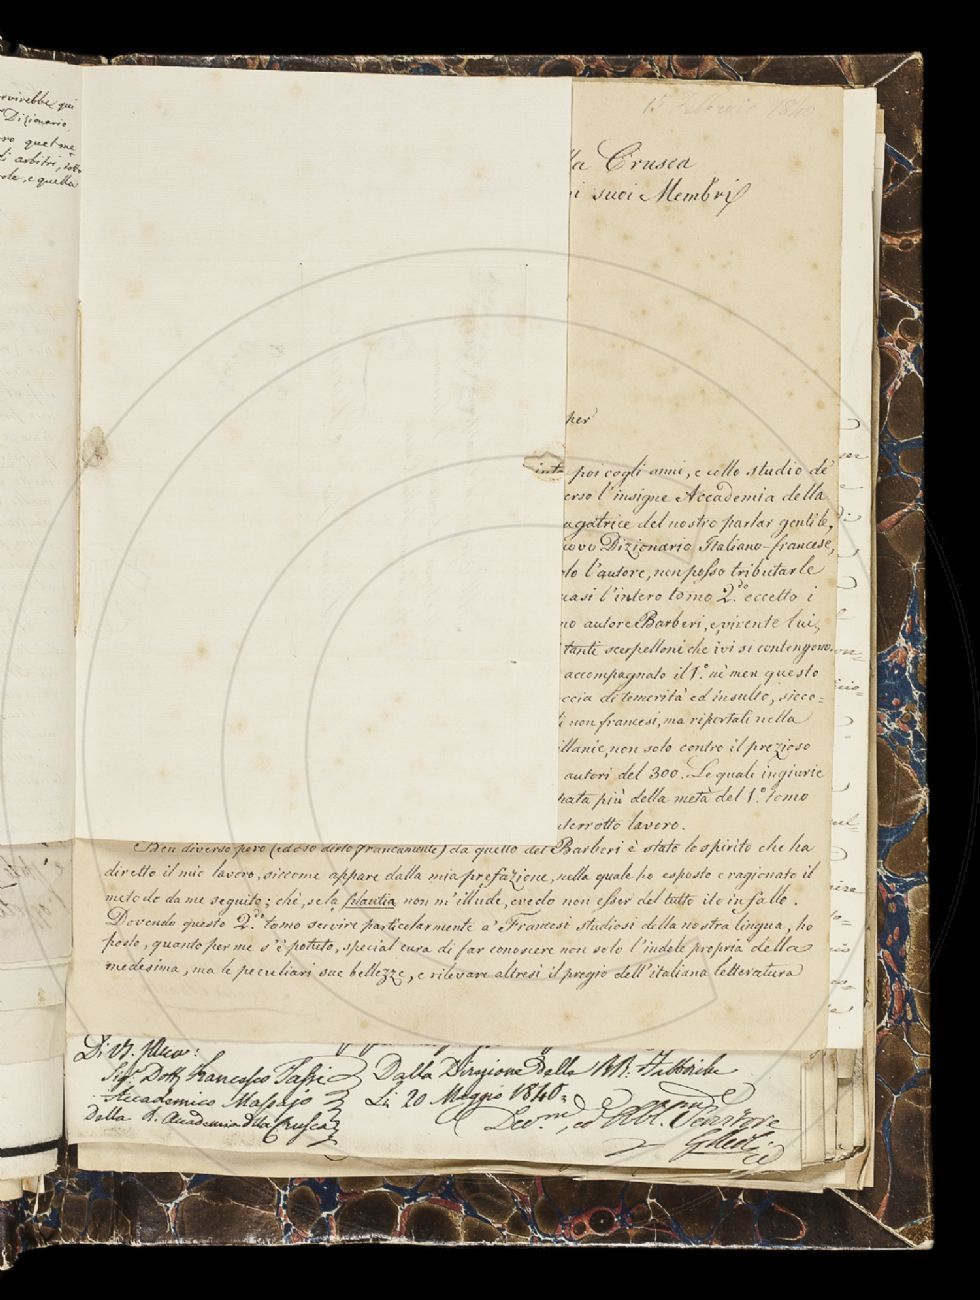 servirebbe qui
Dizionario,
quel me
di arbitri, sotto
e quella
15 1840
lla Crusca
i suoi Membri
per
into poi cogli anni, e collo studio de'
verso l'insigne Accademia della
agatrice del nostro parlar gentile,
nuovo Dizionario Italiano-francese,
olo l'autore, non posso tributarle
uasi l'intero tomo 2.do eccetto i
no autore Barberi, e, vivente lui,
tanti scerpelloni che ivi si contengono,
accompagnato il 1.o nè men questo
ccia di temerità ed insulto, sicco=
i non francesi, ma riportati nella
illanie, non solo contro il prezioso
autori del 300. Le quali ingiurie
pata più della metà del 1.o tomo
nterrotto lavoro.
Ben diverso però (ed oso dirlo francamente) da quello del Barberi è stato lo spirito che ha
diretto il mio lavoro, siccome appare dalla mia prefazione, nella quale ho esposto e ragionato il
metodo da me seguito; chè, se la filautia non m'illude, credo non esser del tutto ito in fallo.
Dovendo questo 2.do tomo servire particolarmente a' Francesi studiosi della nostra lingua, ho
posto, quanto per me s'è potuto, special cura di far conoscere non solo l'indole propria della
medesima, ma le peculiari sue bellezze, e rilevare altresì il pregio dell'italiana letteratura
Di VS. Illma:
Sigr. Dott. Francesco Tassi
Accademico Massajo
Della R. Accademia della Crusca
Dalla Direzione Delle RR. Fabbriche
Li 20 Maggio 1840.
Dev.mo, ed Obbl. Servitore